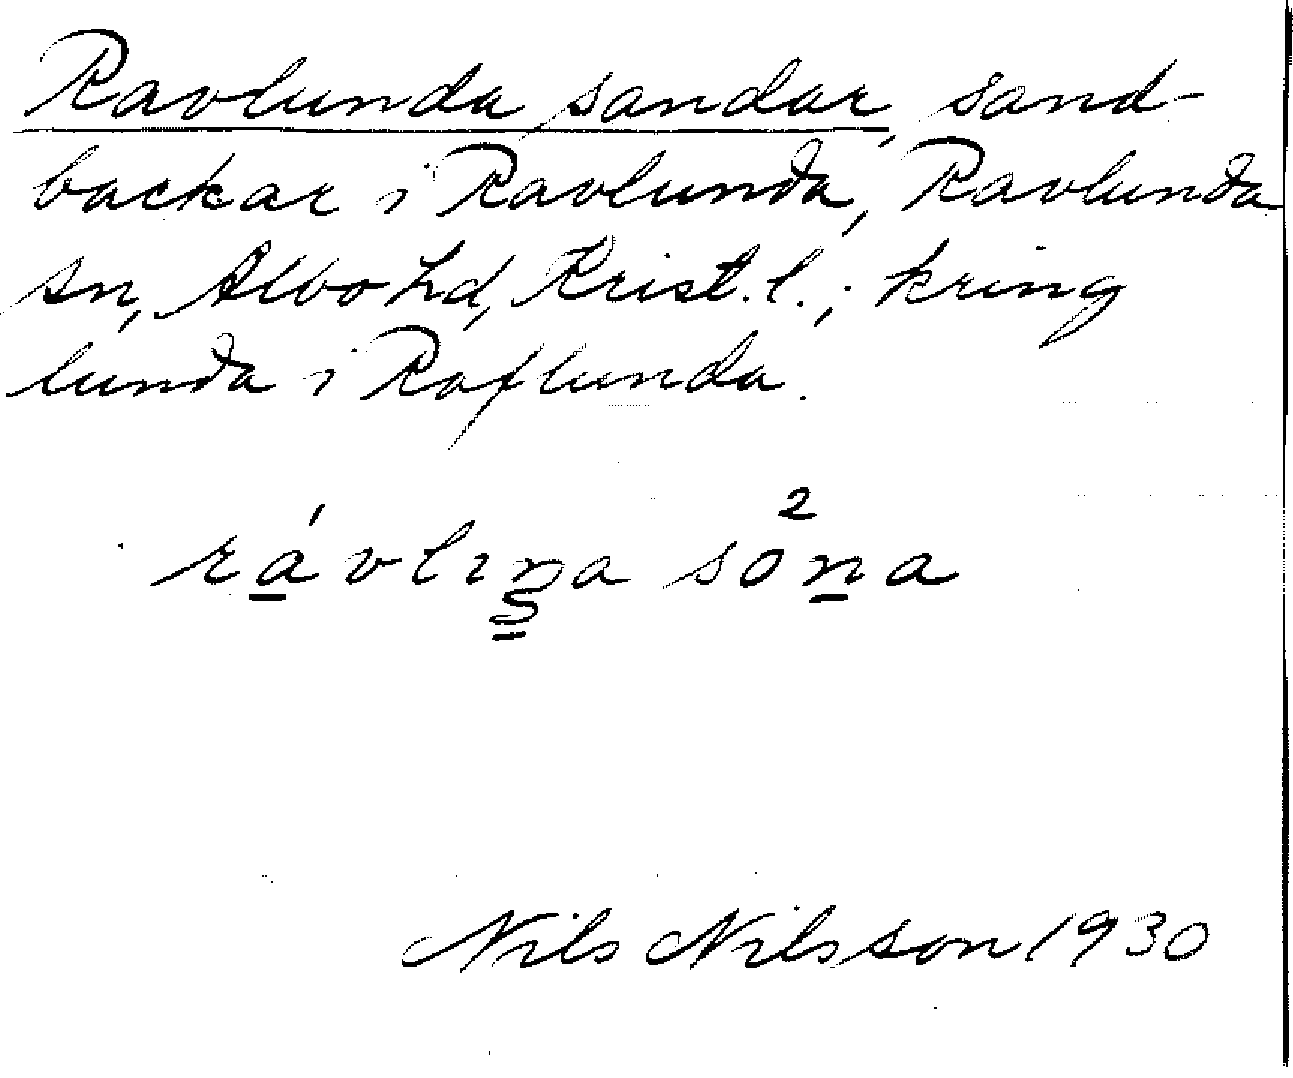 Ravlunda sandar, sand-
backar i Ravlunda, Ravlunda
sn, Albo hd, Krist. l.; kring
lunda i Raflunda.
rávlıṉa sóṉa
2
Nils Nilsson 1930